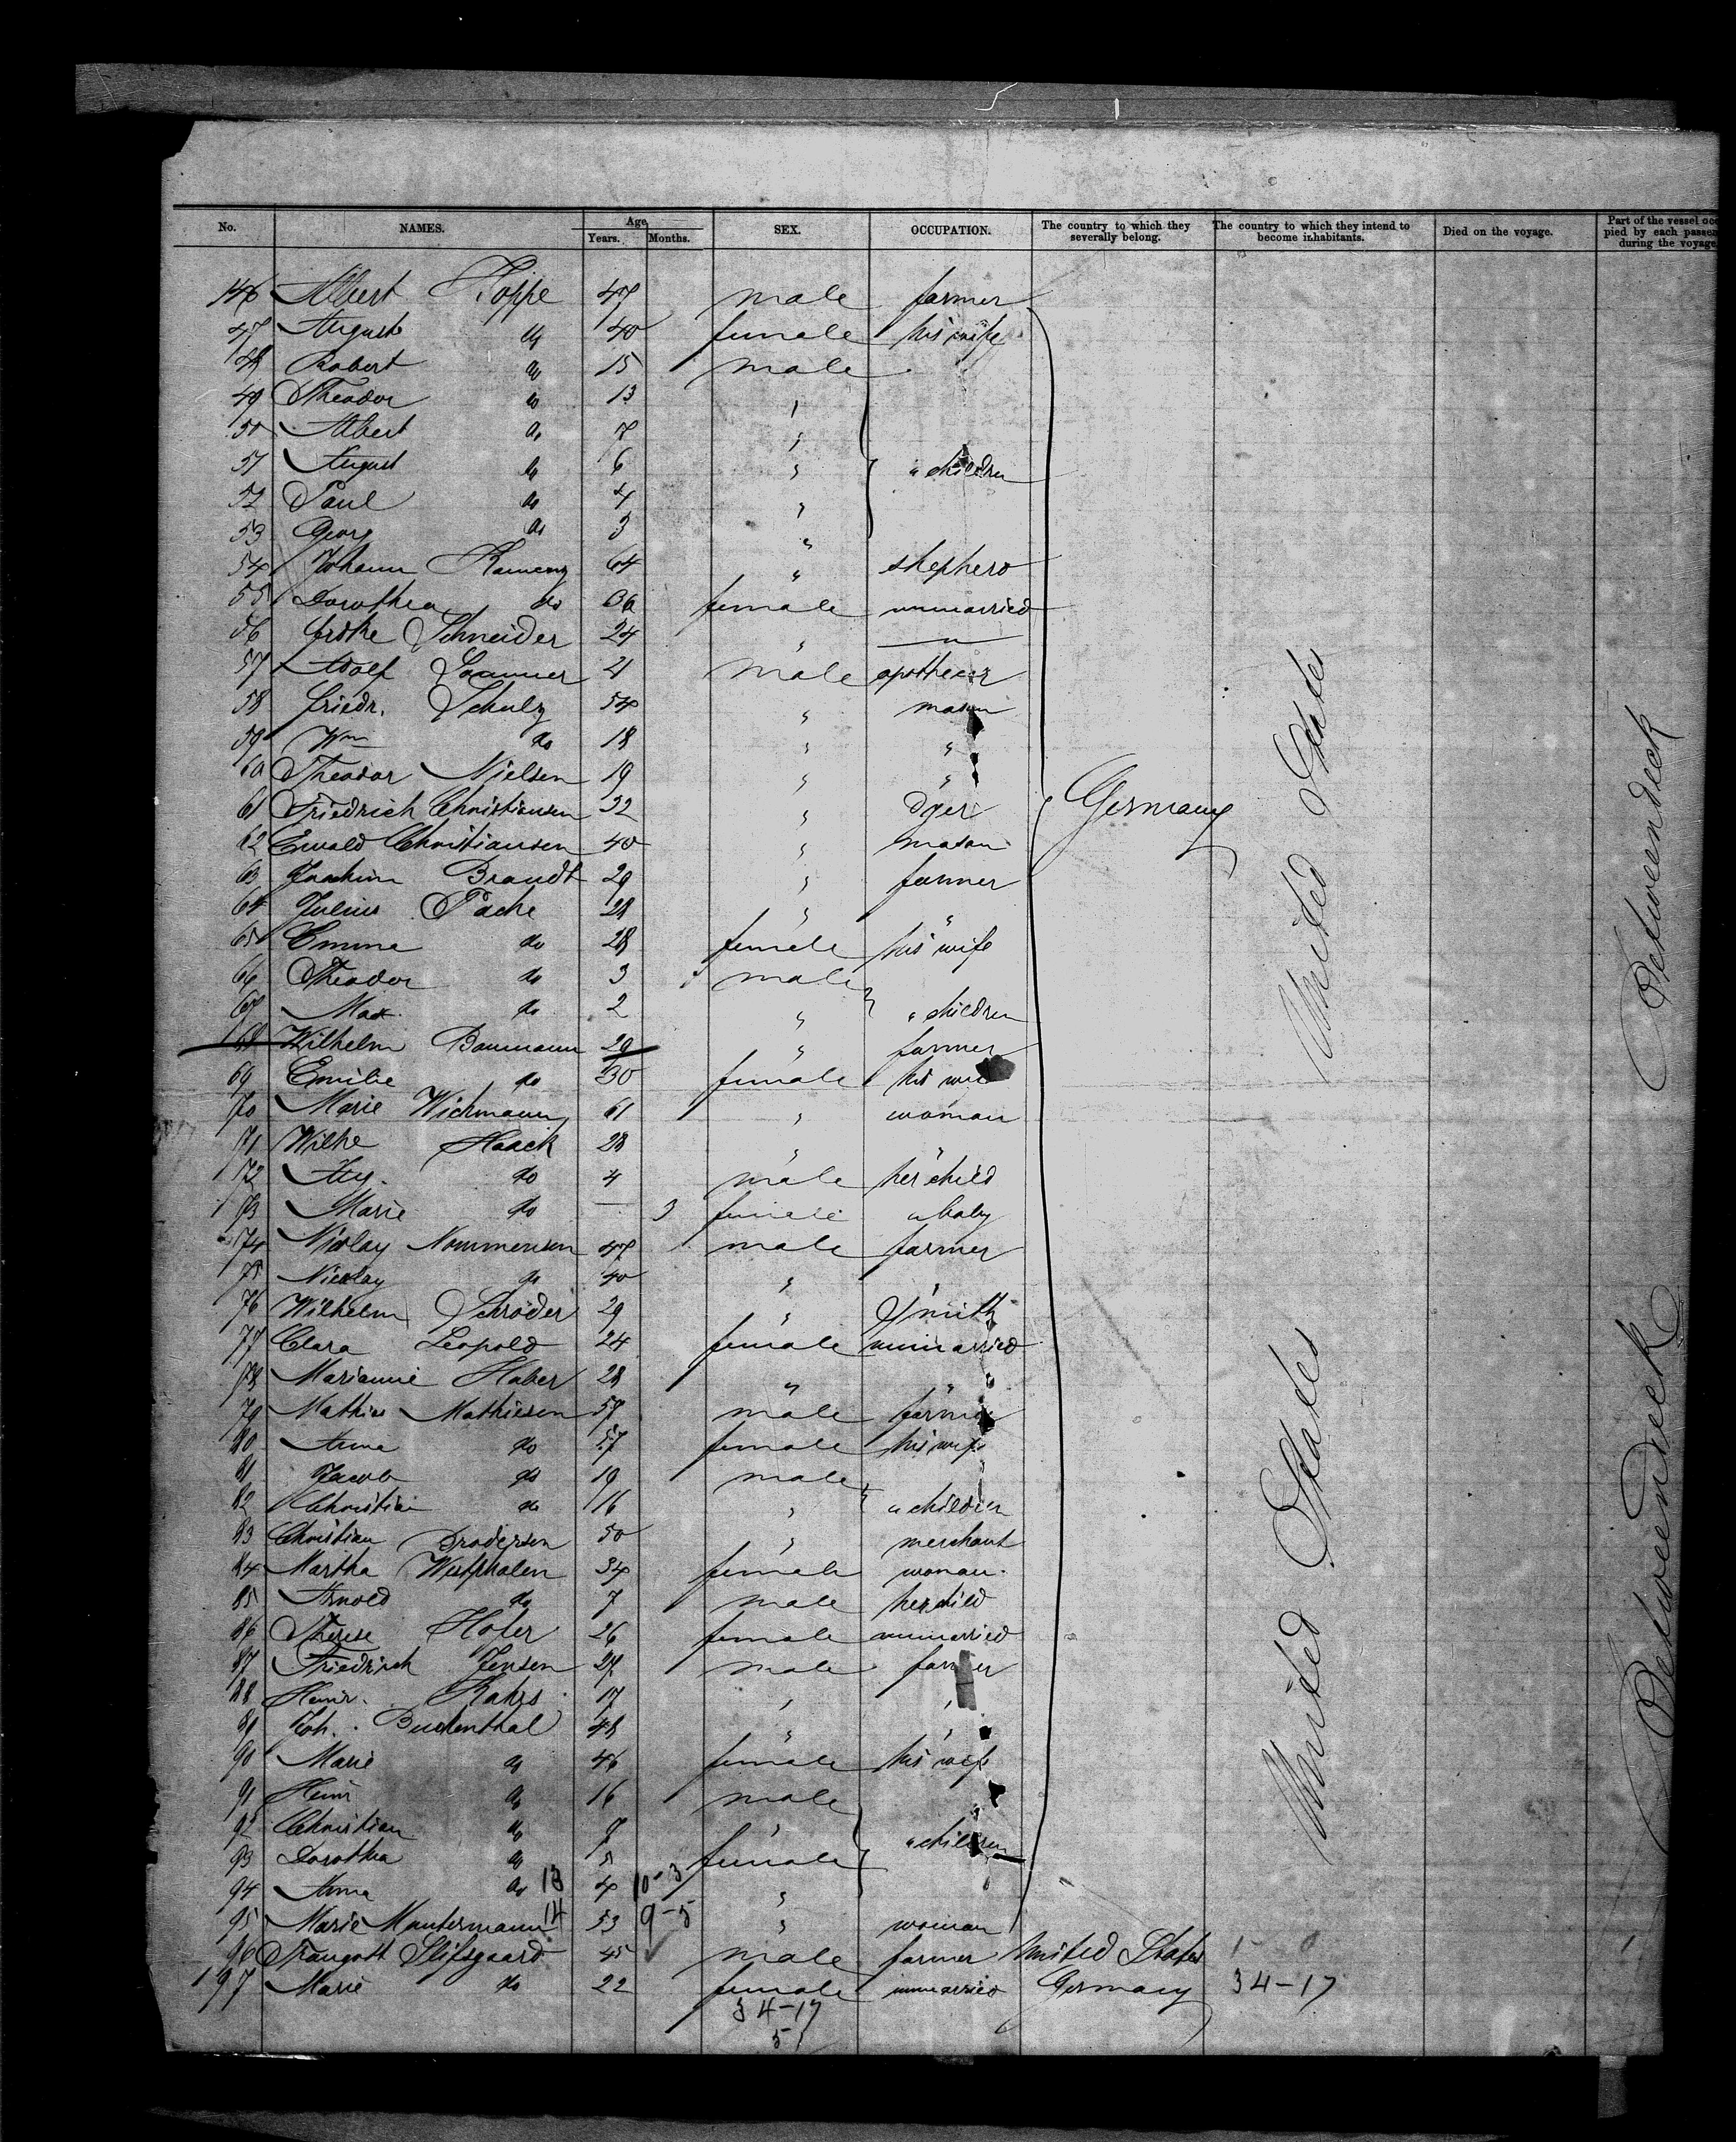 No. NAMES. Age Years. Months. SEX. OCCUPATION. The country to which they severally belong. The country to which they intend to become inhabitants. Died on the voyage. Part of the vessel occupied by each passen during the voyage
146 Albert Koppe 47 male farmer
47 Auguste do 40 female his wife
48 Robert do 15 male
49 Theodor do 13 "
50 Albert do 7 "
51 August do 6 " " children
52 Paul do 4 "
53 Georg do 3 "
54 Johann 64 " shepherd
55 Dorothea do 36 female unmarried
56 Schneider 24 " "
57 Adolf 21 male
58 Friedr. Schulz 54 " mason
59 Wm do 18 " "
60 Theodor Nielsen 19 " "
61 Friedrich Christiansen 32 " dyer
62 Ewald Christiansen 40 " mason
63 Joachim Brandt 29 " farmer
64 Julius Pache 28 " "
65 Emma do 28 female his wife
66 Theodor do 3 male
67 Max do 2 " " children
168 Wilhelm Baumann 29 " farmer
69 Emilie do 30 female his wife
70 Marie Wichmann 61 " woman
71 Wilhe Haack 28 " "
172 Aug. do 4 male her child
173 Marie do — 3 female " baby
74 Nicolay Nommensen 47 male farmer
75 Nicolay do 40 "
76 Wilhelm Schröder 29 " Smith
77 Clara Leopold 24 female unmarried
78 Marianne Huber 28 " "
79 Mathias Mathiesen 57 male farmer
80 Anna do 57 female his wife
81 Jacob do 19 male
82 Christian do 16 " " children
83 Christian Brodersen 50 " merchant
84 Martha Westphalen 34 female woman.
85 Arnold do 7 male her child
86 Therese Hofer 26 female unmarried
87 Friedrich Jensen 27 male farmer
88 Heinr. Rahrs 17 " "
89 Joh. Buchenthal 48 " "
90 Marie do 46 female his wife
91 Heinr do 16 male
92 Christian do 7 "
93 Dorothea do 5 female " children
94 Anna do 13 4 10-3 "
95 Marie Mantermann 14 53 9-5 " woman
96 45 male farmer United States 1 0 1
197 Marie do 22 female unmarried Germany 34-17
34-17
51
Germany
United States
United States
Betweendeck
Betweendeck